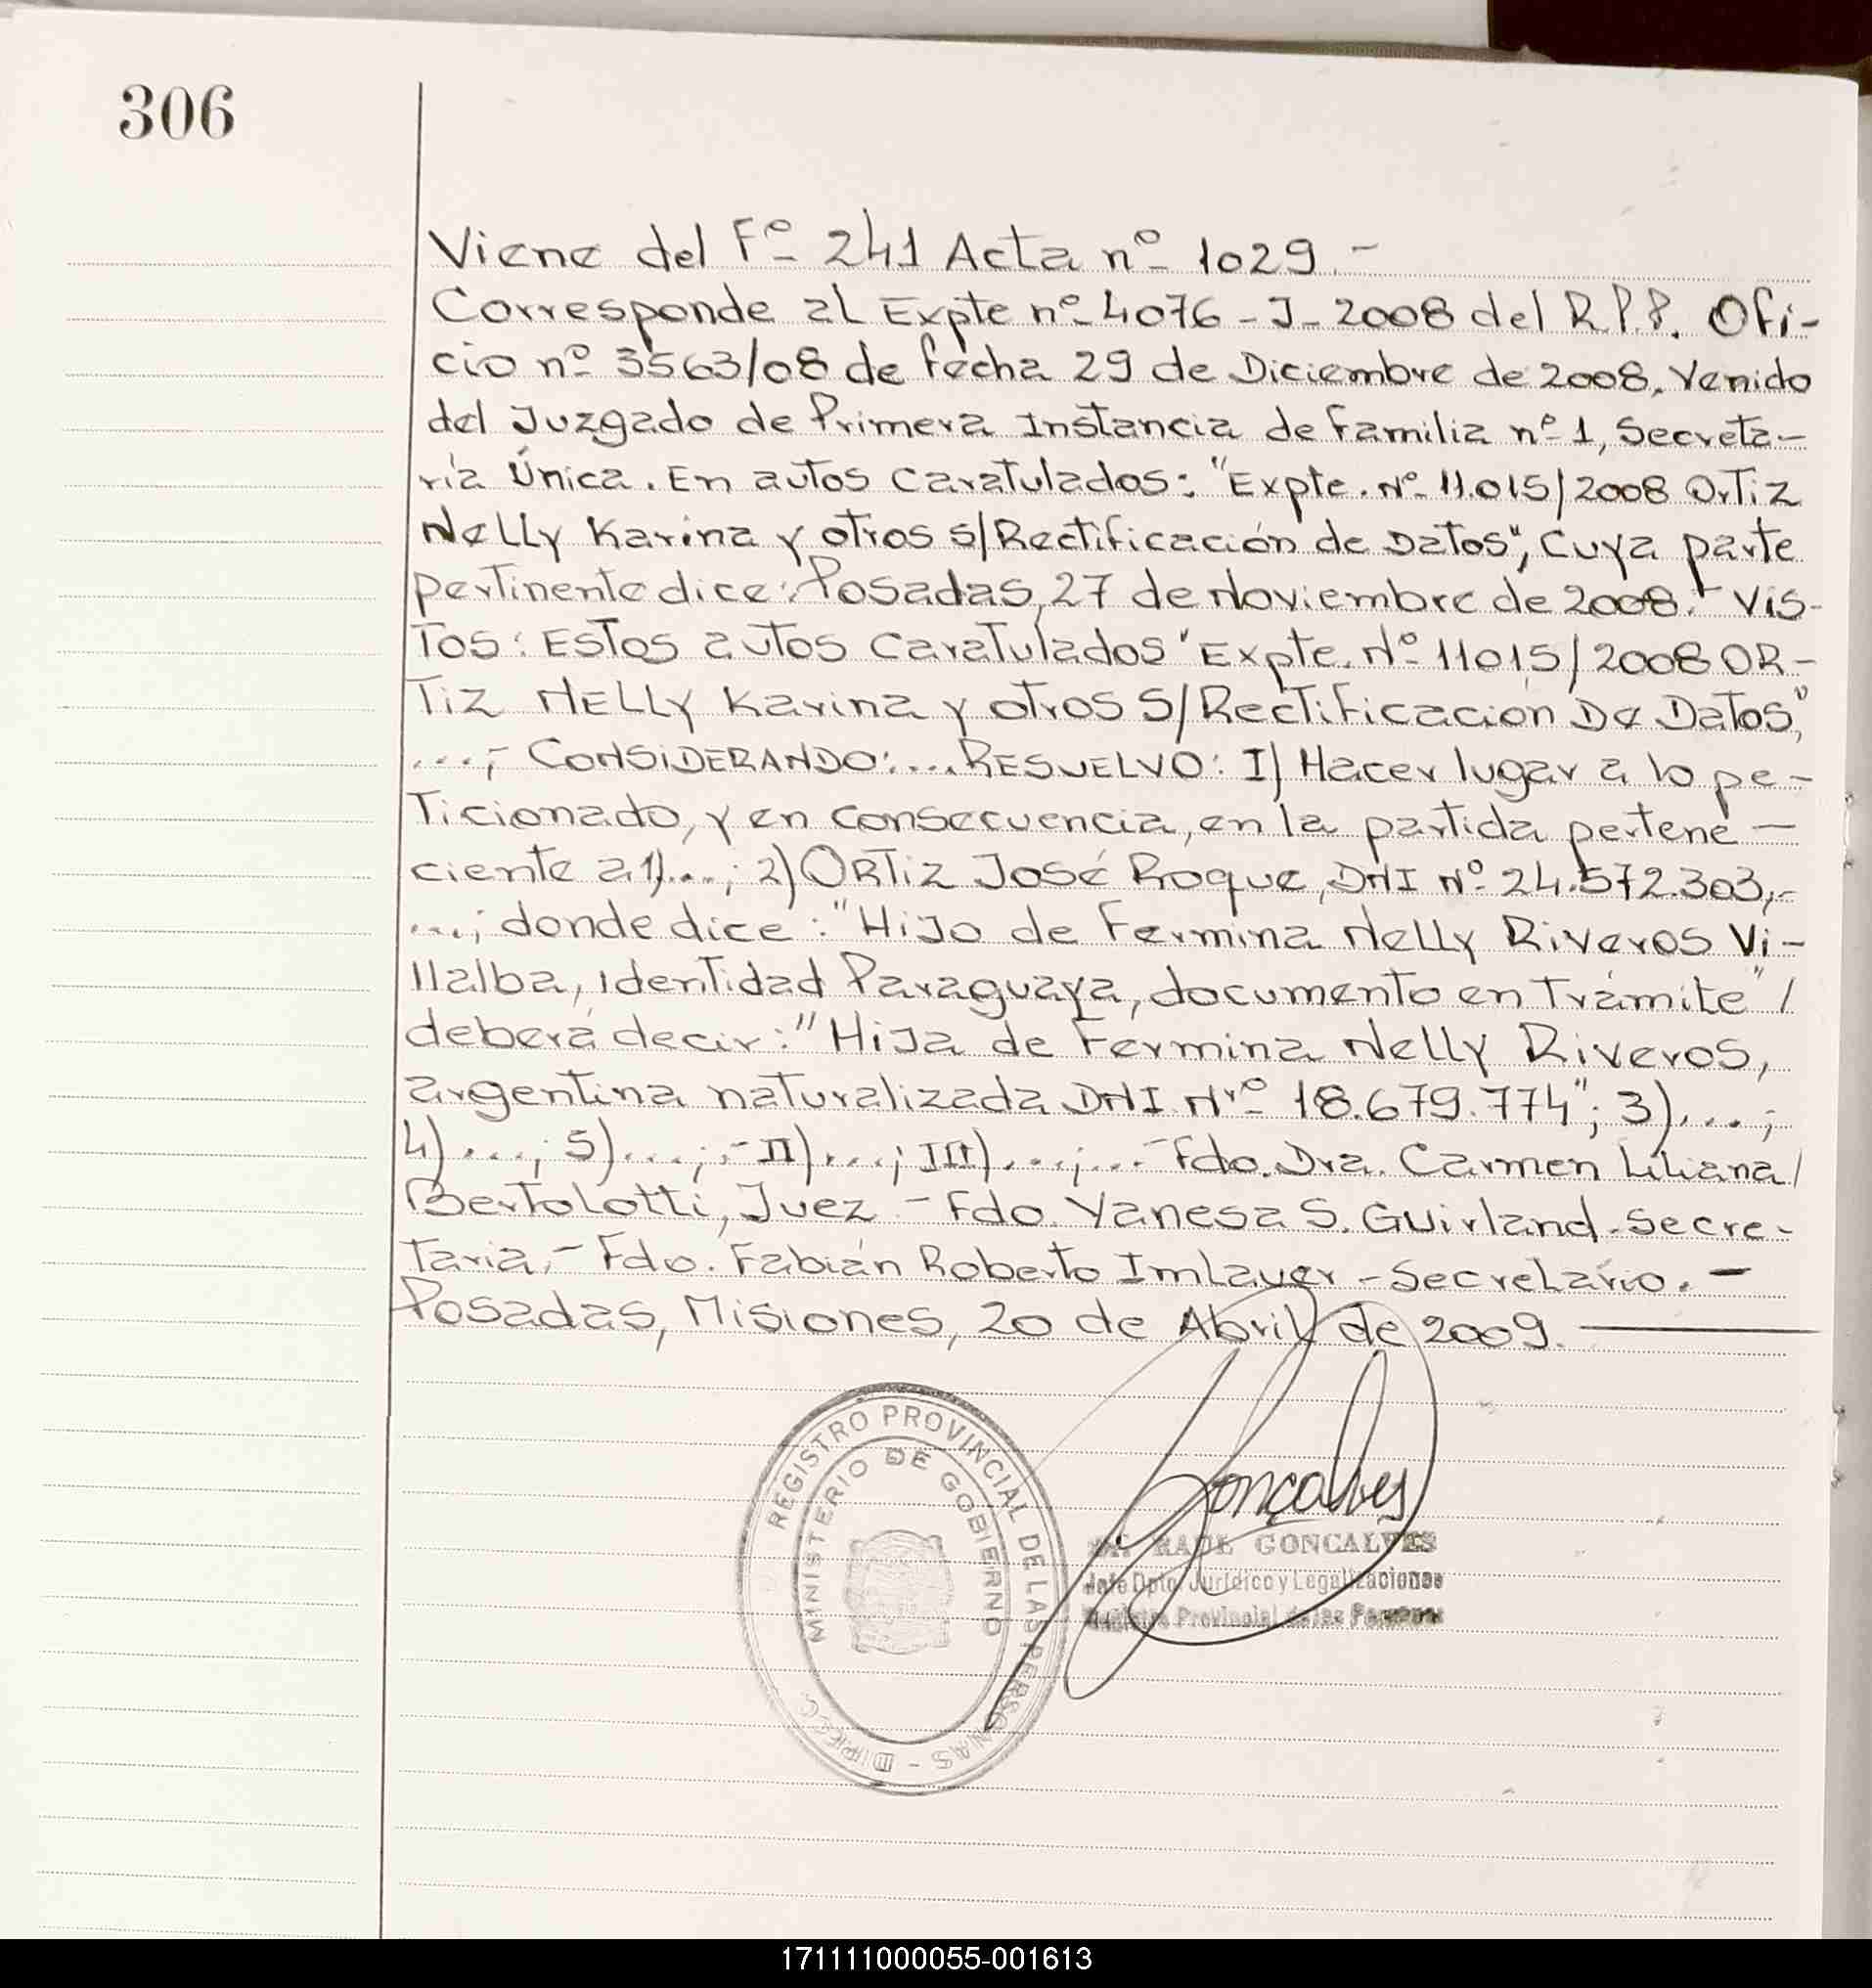 306
Viene del Fº 241 Acta nº 1029.-
Corresponde al Expte nº 4076-J-2008 del R.P.P. Ofi-
cio nº 3563/08 de fecha 29 de Diciembre de 2008, Venido
del Juzgado de Primera Instancia de Familia nº 1, Secreta-
ría Única. En autos Caratulados: "Expte. Nº 11.015/2008 Ortiz
Nelly Karina y otros s/Rectificación de Datos", Cuya parte
pertinente dice: Posadas, 27 de Noviembre de 2008.- Vis-
tos: Estos autos Caratulados "Expte. Nº 11015/2008 OR-
TIZ NELLY Karina y otros S/Rectificación De Datos",
...,- CONSIDERANDO:... RESUELVO: I) Hacer lugar a lo pe-
ticionado, y en consecuencia, en la partida pertene-
ciente a 1)...; 2) ORTIZ José Roque, DNI Nº 24.572.303,-
...; donde dice: "Hijo de Fermina Nelly Riveros Vi-
llalba, identidad Paraguaya, documento en Trámite" /
deberá decir: "Hija de Fermina Nelly Riveros,
argentina naturalizada DNI Nrº 18.679.774"; 3)....;
4)....; 5)....;.- II)...; III)....;...-Fdo. Dra. Carmen Liliana/
Bertolotti, Juez.- Fdo. Vanesa S. Guirland-Secre-
taria,- Fdo. Fabián Roberto Imlauer - Secretario.-
Posadas, Misiones, 20 de Abril de 2009.
REGISTRO PROVINCIAL DE LAS PERSONAS -
MINISTERIO DE GOBIERNO
Gonçalves
RAUL GONCALVES
Jefe Dpto. Jurídico y Legalizaciones
Registro Provincial de las Personas
171111000055-001613